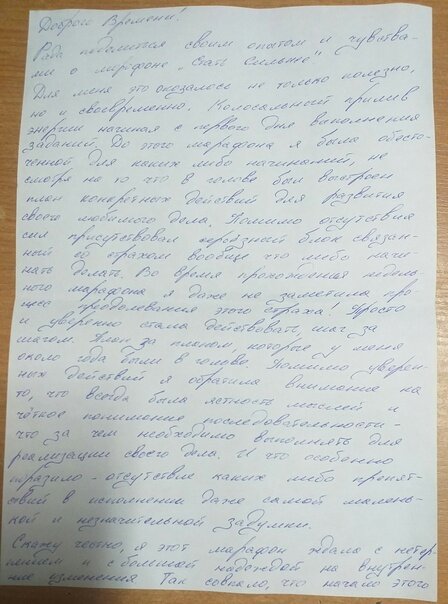 Доброго Времени!
Рада поделиться своим опытом и чувства-
ми о марафоне "Стать Сильнее"
Для меня это оказалось не только полезно,
но и своевременно. Колосальный прилив
энергии начиная с первого дня выполнения
заданий. До этого марафона я была обесто-
ченной для каких либо начинаний, не
смотря на то что в голове был выстроен
план конкретных действий для развития
своего любимого дела. Помимо отсутствия
сил присутствовал серьёзный блок связан-
ный со страхом вообще что либо начи-
нать делать. Во время прохождения недель-
ного марафона я даже не заметила про-
цесс преодолевания этого страха! Просто
и уверенно стала действовать, шаг за
шагом. План за планом, которые у меня
около года были в голове. Помимо уверен-
ных действий я обратила внимание на
то, что всегда была ясность мыслей и
чёткое понимание последовательности -
что за чем необходимо выполнять для
реализации своего дела. И что особенно
поразило - отсутствие каких либо препят-
ствий в исполнении даже самой малень-
кой и незначительной задумки.
Скажу честно, я этот марафон ждала с нетер-
пением и с большой надеждой на внутрен-
ние изменения Так совпало, что начало этого